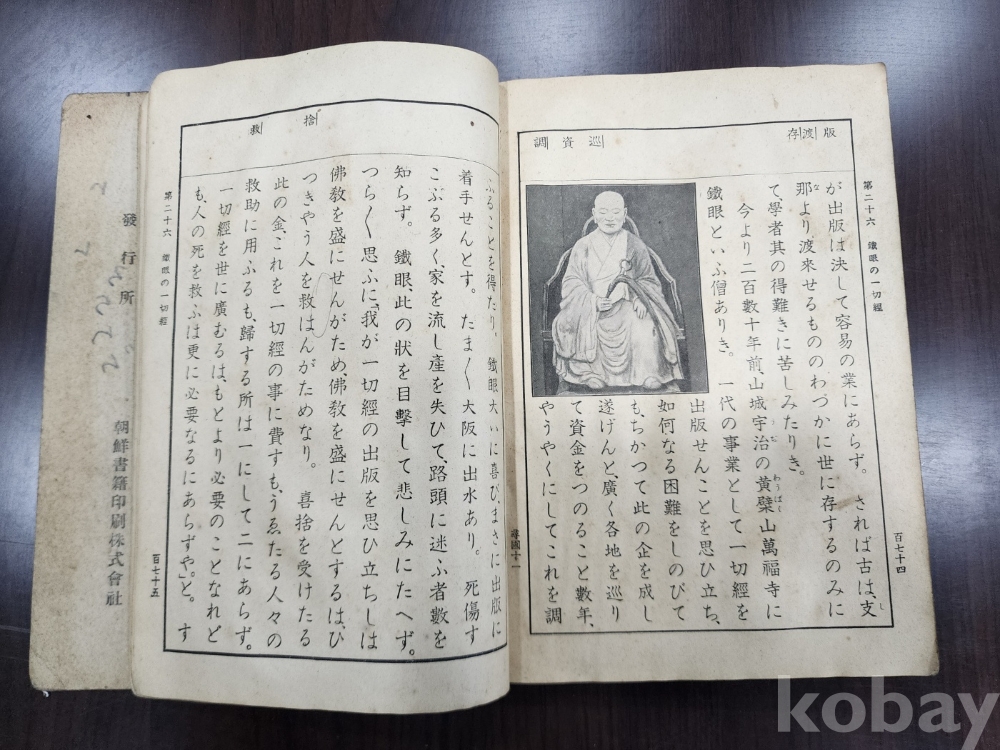 版 渡 存
巡 資 調
第二十六 鐵眼の一切經
百七十四
が出版は決して容易の業にあらず。されば古は、支
那より渡來せるもののわづかに世に存するのみに
て、學者其の得難きに苦しみたりき。
今より二百數十年前、山城宇治の黃檗山萬福寺に
鐵眼といふ僧ありき。一代の事業として一切經を
出版せんことを思ひ立ち、
如何なる困難をしのびて
も、ちかつて此の企を成し
遂げんと、廣く各地を巡り
て資金をつのること數年、
やうやくにしてこれを調
尋國十一
捨 救
ふることを得たり。鐵眼大いに喜び、まさに出版に
着手せんとす。たま〳〵大阪に出水あり。死傷す
こぶる多く、家を流し産を失ひて、路頭に迷ふ者數を
知らず。鐵眼此の狀を目擊して悲しみにたへず。
つら〳〵思ふに、「我が一切經の出版を思ひ立ちしは
佛教を盛にせんがため、佛教を盛にせんとするは、ひ
つきやう人を救はんがためなり。喜捨を受けたる
此の金、これを一切經の事に費すも、うゑたる人々の
救助に用ふるも、歸する所は一にして二にあらず。
一切經を世に廣むるは、もとより必要のことなれど
も、人の死を救ふは更に必要なるにあらずや。」と。す
第二十六 鐵眼の一切經
百七十五
發行所
朝鮮書籍印刷株式會社
kobay